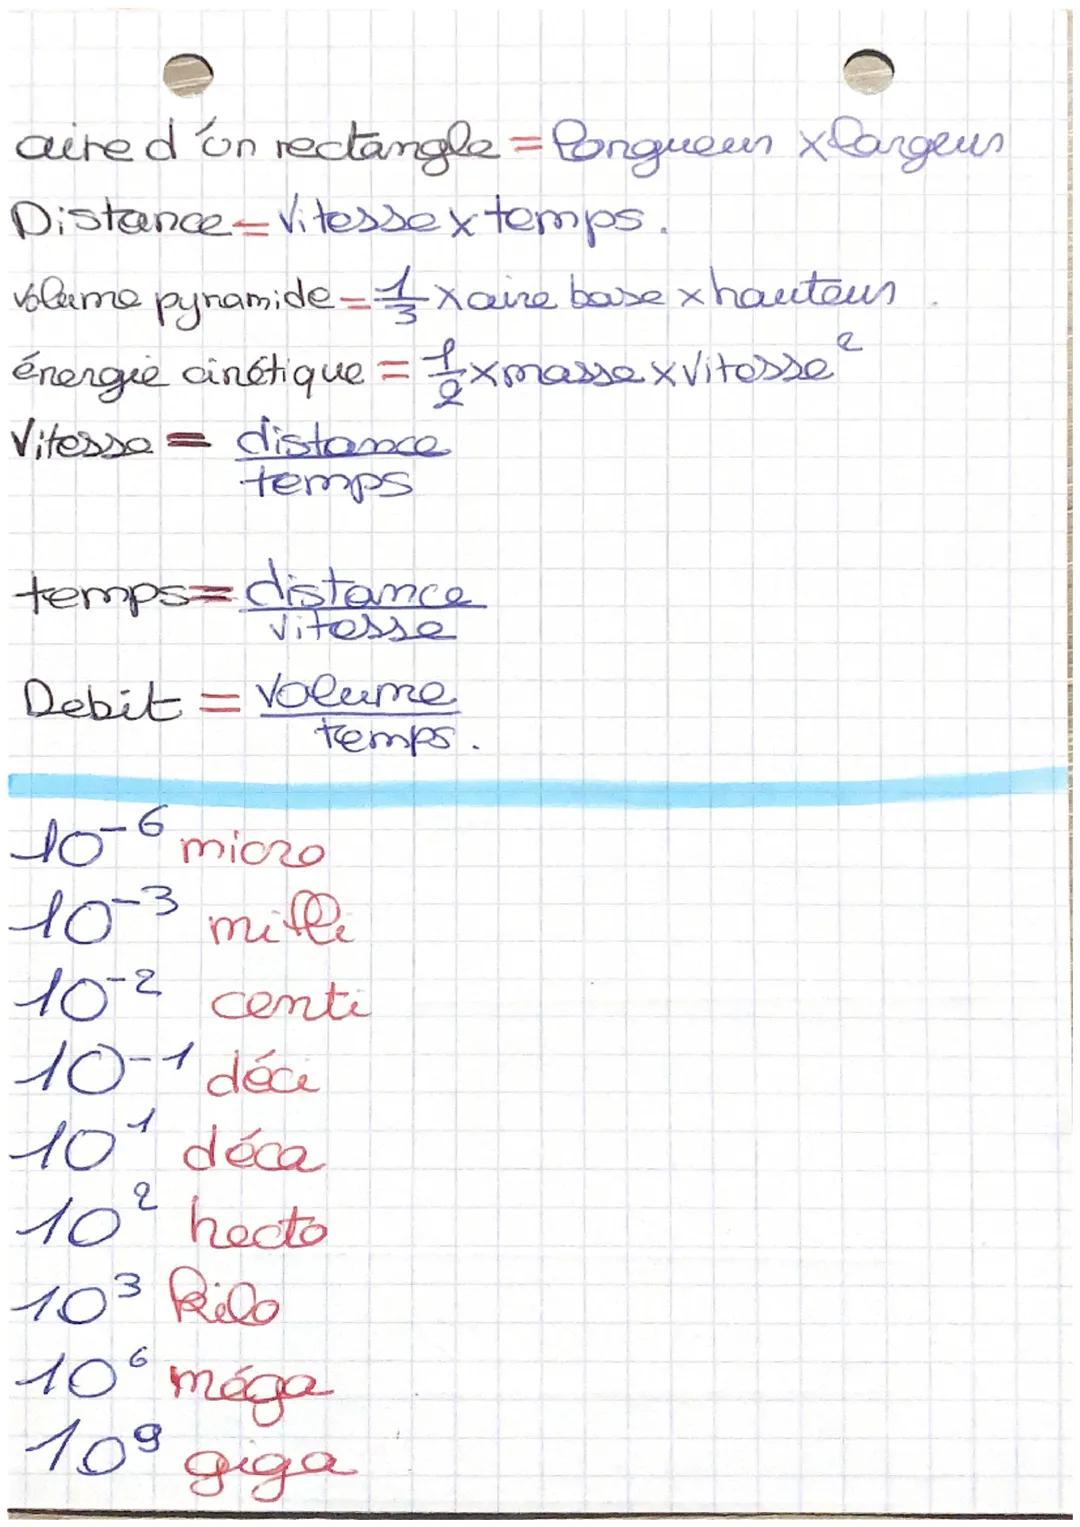 aire d'un rectangle = longueur x largeur
Distance = Vitesse x temps.
volume pyramide = 1/3 x aire base x hauteur.
énergie cinétique = 1/2 x masse x vitesse²
Vitesse = distance
temps
temps = distance
vitesse
Debit = volume
temps.
10⁻⁶ micro
10⁻³ milli
10⁻² centi
10⁻¹ déci
10¹ déca
10² hecto
10³ kilo
10⁶ méga
10⁹ giga